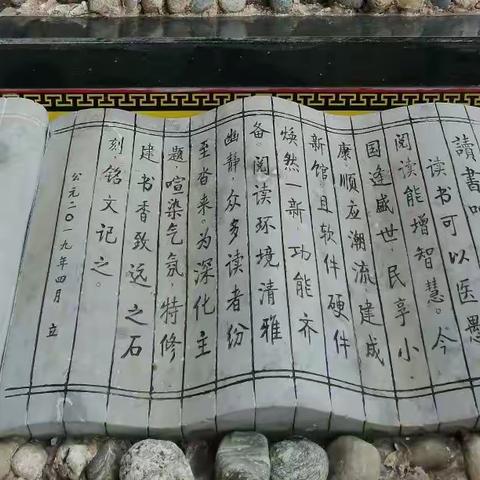 讀書
读书可以医愚
阅读能增智慧。今
国逢盛世,民享小
康,顺应潮流建成
新馆,且软件硬件
焕然一新,功能齐
备。阅读环境清雅
幽静,众多读者纷
至沓来。为深化主
题,喧染气氛,特修
建书香致远之石
刻,铭文记之。
公元二〇一九年四月 立